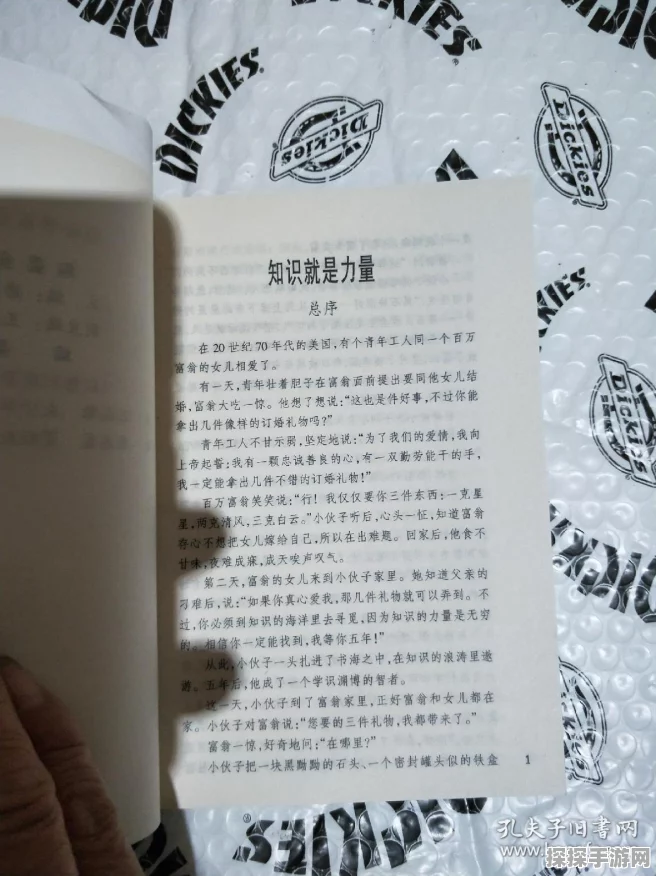 DICKIES
Dickies
知识就是力量
总序
在20世纪70年代的美国,有个青年工人同一个百万
富翁的女儿相爱了。
有一天,青年壮着胆子在富翁面前提出要同他女儿结
婚,富翁大吃一惊。他想了想说:“这也是件好事,不过你能
拿出几件像样的订婚礼物吗?”
青年工人不甘示弱,坚定地说:“为了我们的爱情,我向
上帝起誓:我有一颗忠诚善良的心,有一双勤劳能干的手,
我一定能拿出几件不错的订婚礼物!”
百万富翁笑笑说:“行!我仅仅要你三件东西:一克星
星,两克清风,三克白云。”小伙子听后,心头一怔,知道富翁
存心不想把女儿嫁给自己,所以在出难题。回家后,他食不
甘味,夜难成寐,成天唉声叹气。
第二天,富翁的女儿来到小伙子家里。她知道父亲的
刁难后,说:“如果你真心爱我,那几件礼物就可以弄到。不
过,你必须到知识的海洋里去寻觅,因为知识的力量是无穷
的。相信你一定能找到,我等你五年!”
从此,小伙子一头扎进了书海之中,在知识的浪涛里遨
游。五年后,他成了一个学识渊博的智者。
这一天,小伙子到了富翁家里,正好富翁和女儿都在
家。小伙子对富翁说:“您要的三件礼物,我都带来了。”
富翁一惊,好奇地问:“在哪里?”
小伙子把一块黑黝黝的石头、一个密封罐头似的铁盒
1
Dickies
Dickies
DICKIES
孔夫子旧书网
探探手游网